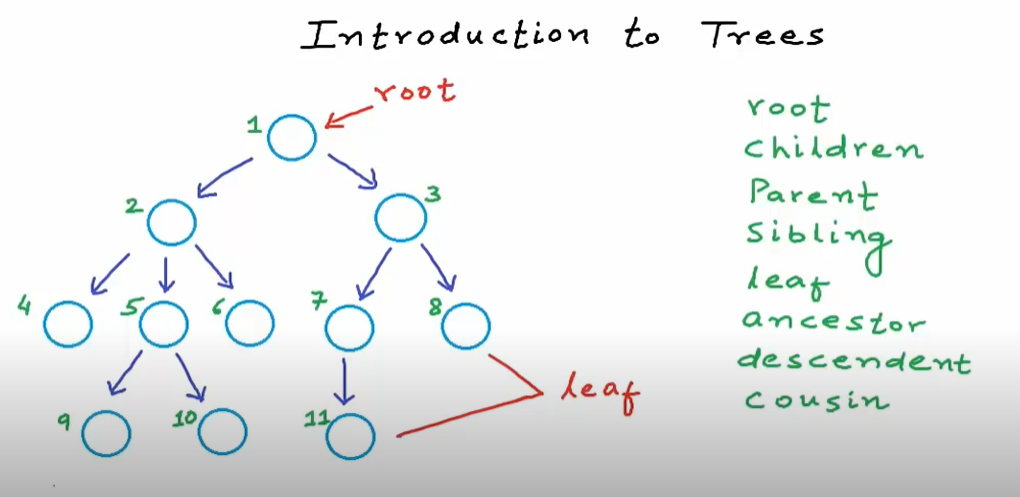 Introduction to Trees
root
1
2
3
4
5
6
7
8
9
10
11
leaf
root
children
Parent
Sibling
leaf
ancestor
descendent
cousin